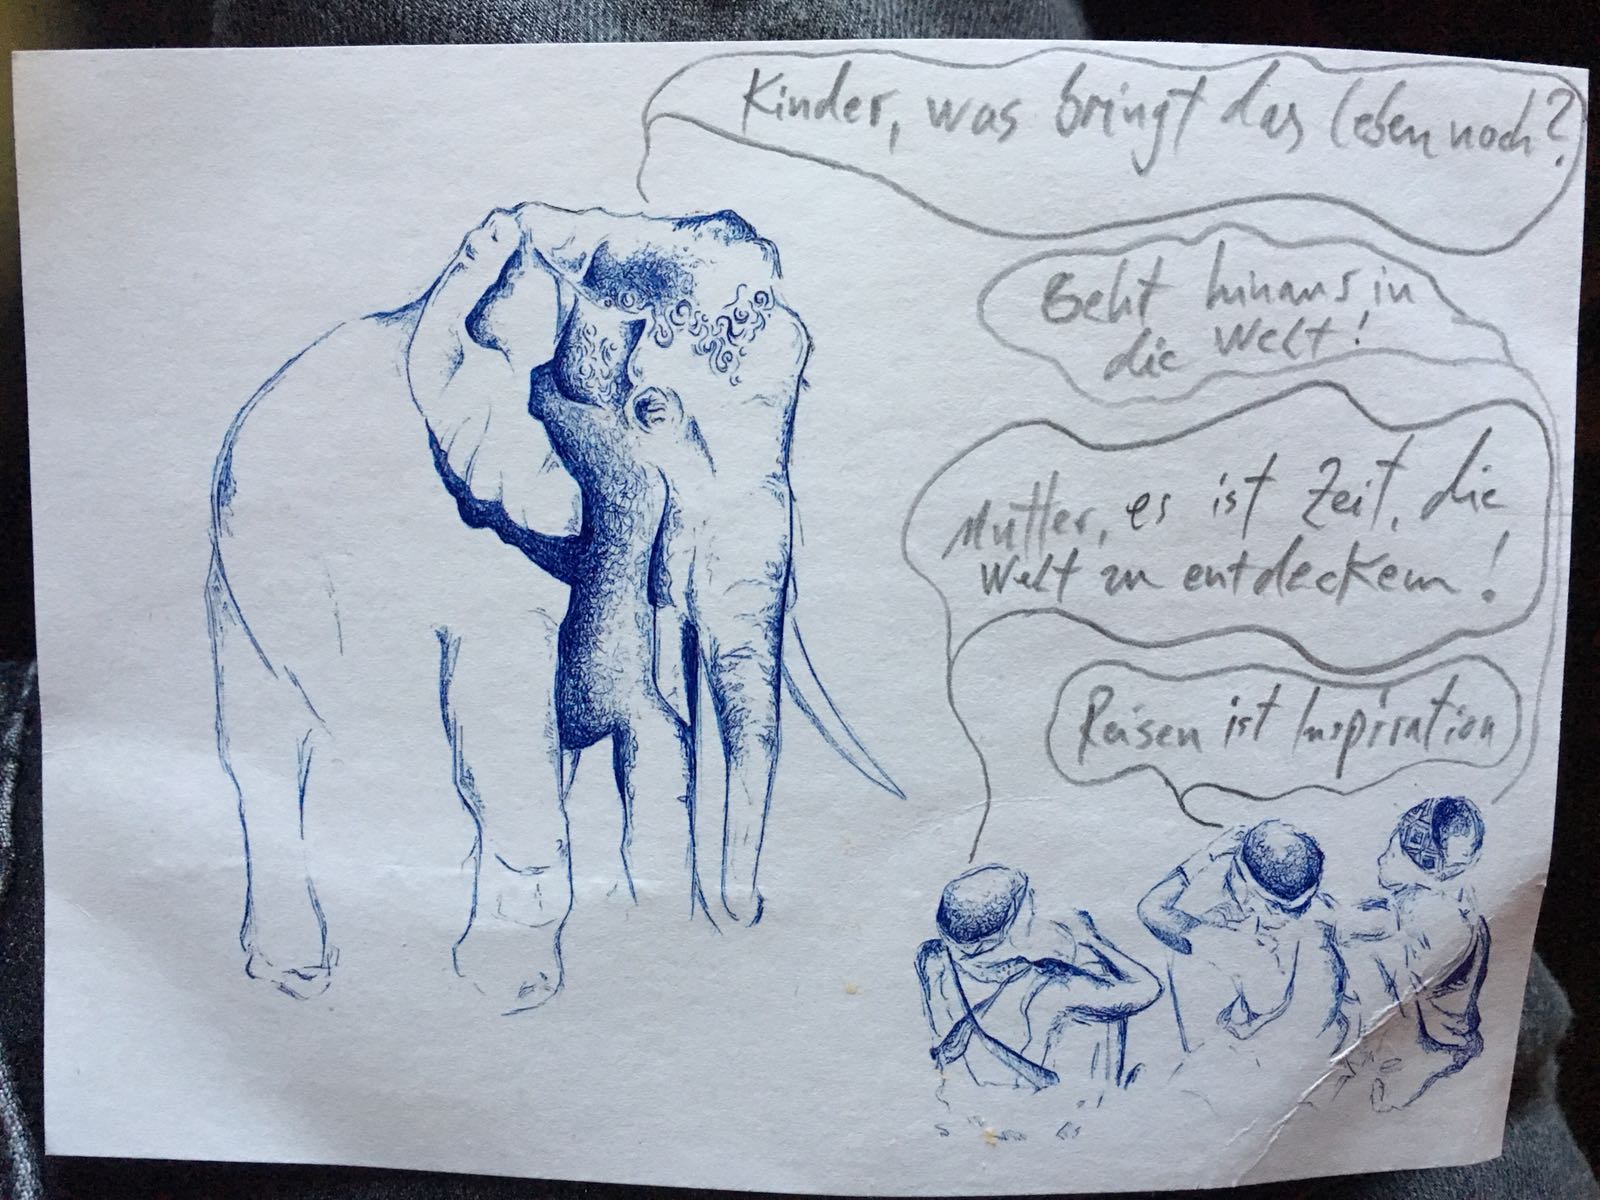 Kinder, was bringt das Leben noch?
Geht hinaus in
die Welt!
Mutter, es ist Zeit, die
Welt zu entdecken!
Reisen ist Inspiration